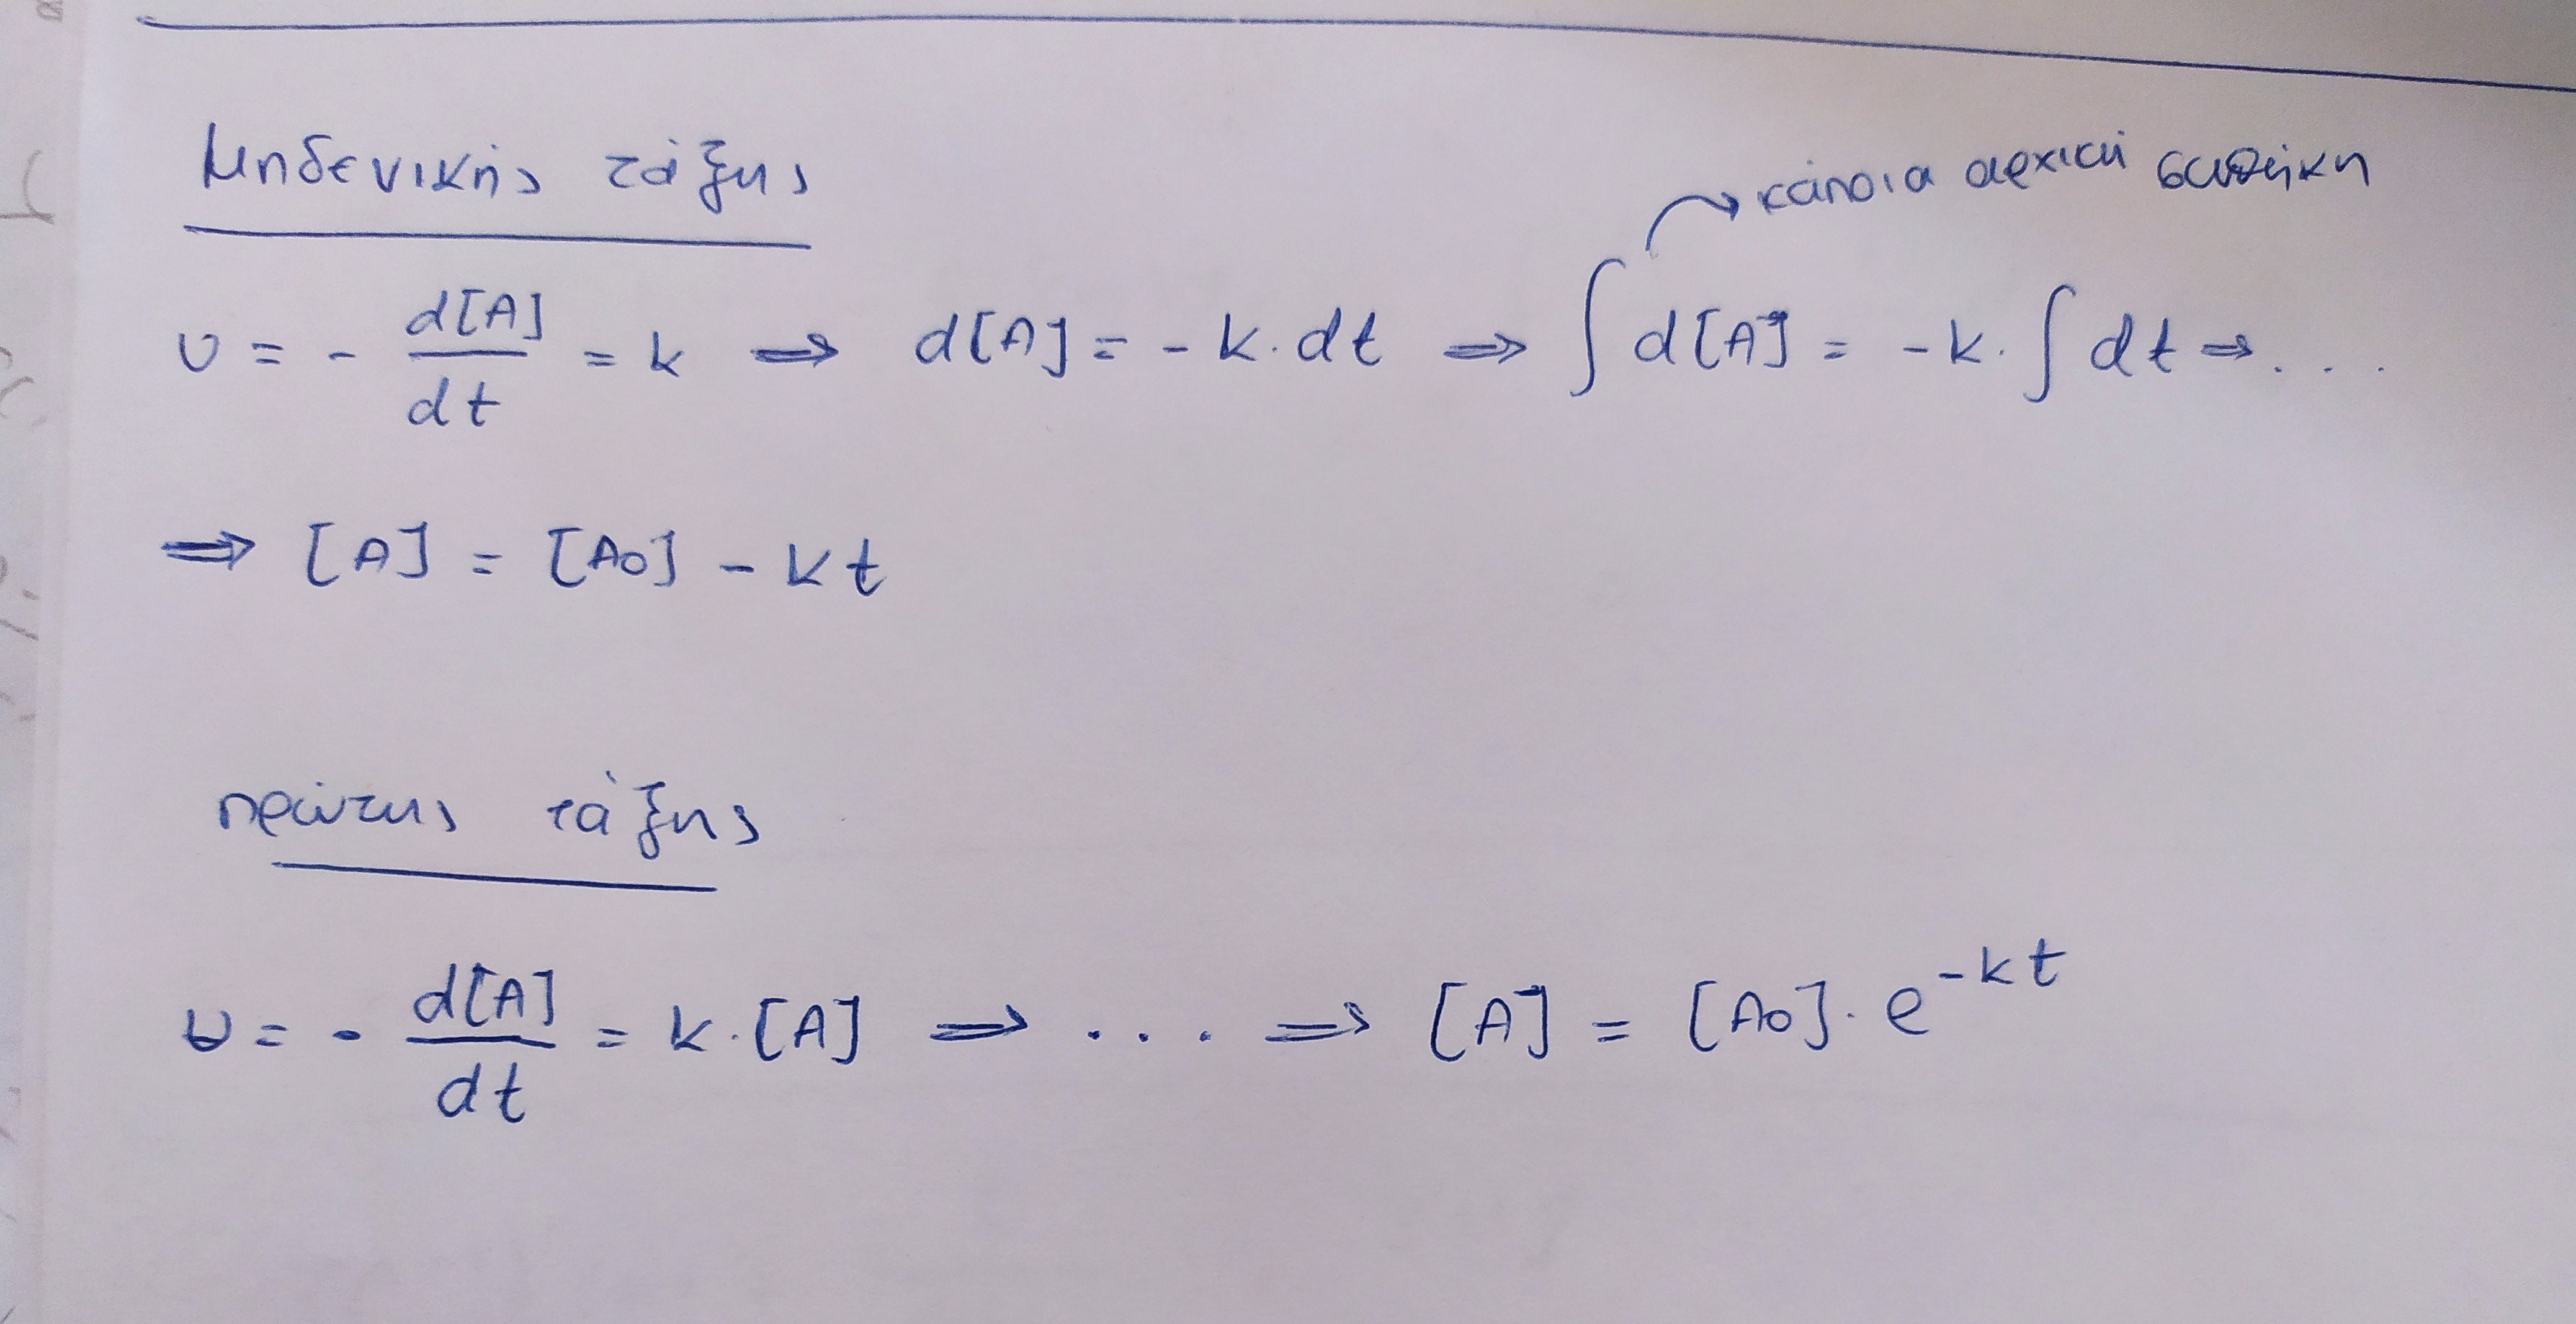 μηδενικής τάξης
κάποια αρχική συνθήκη
υ = - d[A]/dt = k ⇒ d[A] = - k · dt ⇒ ∫ d[A] = - k · ∫ dt ⇒ ...
⇒ [A] = [A₀] - kt
πρώτης τάξης
υ = - d[A]/dt = k · [A] ⇒ ... ⇒ [A] = [A₀] · e^(-kt)